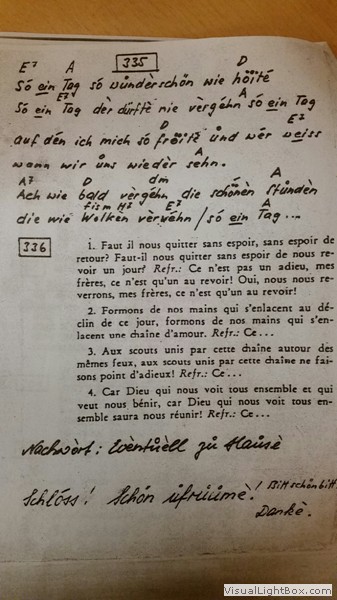 335
E7 A D
Só ein Tag só wůnděrschőn wie hőité
E7 A
Só ein Tag děr důrftě nie věrgěhn só ein Tag
D E7
auf děn ich mich só frőitě ůnd wěr weiss
A
wann wir ůns wieděr sehn.
A7 D dm A
Ach wie bald věrgěhn die schőněn Stůnděn
fism H7 E7 A
die wie Wolken věrwehn / só ein Tag...
336
1. Faut il nous quitter sans espoir, sans espoir de
retour? Faut-il nous quitter sans espoir de nous re-
voir un jour? Refr.: Ce n'est pas un adieu, mes
frères, ce n'est qu'un au revoir! Oui, nous nous re-
verrons, mes frères, ce n'est qu'un au revoir!
2. Formons de nos mains qui s'enlacent au dé-
clin de ce jour, formons de nos mains qui s'en-
lacent une chaîne d'amour. Refr.: Ce...
3. Aux scouts unis par cette chaîne autour des
mêmes feux, aux scouts unis par cette chaîne ne fai-
sons point d'adieux! Refr.: Ce...
4. Car Dieu qui nous voit tous ensemble et qui
veut nous bénir, car Dieu qui nous voit tous en-
semble saura nous réunir! Refr.: Ce...
Nachwört: Evěntůell zů Hausě
Schlőss! Schőn ůfrůůmě! Bitt schőn bitt
Dankě.
VisualLightBox.com